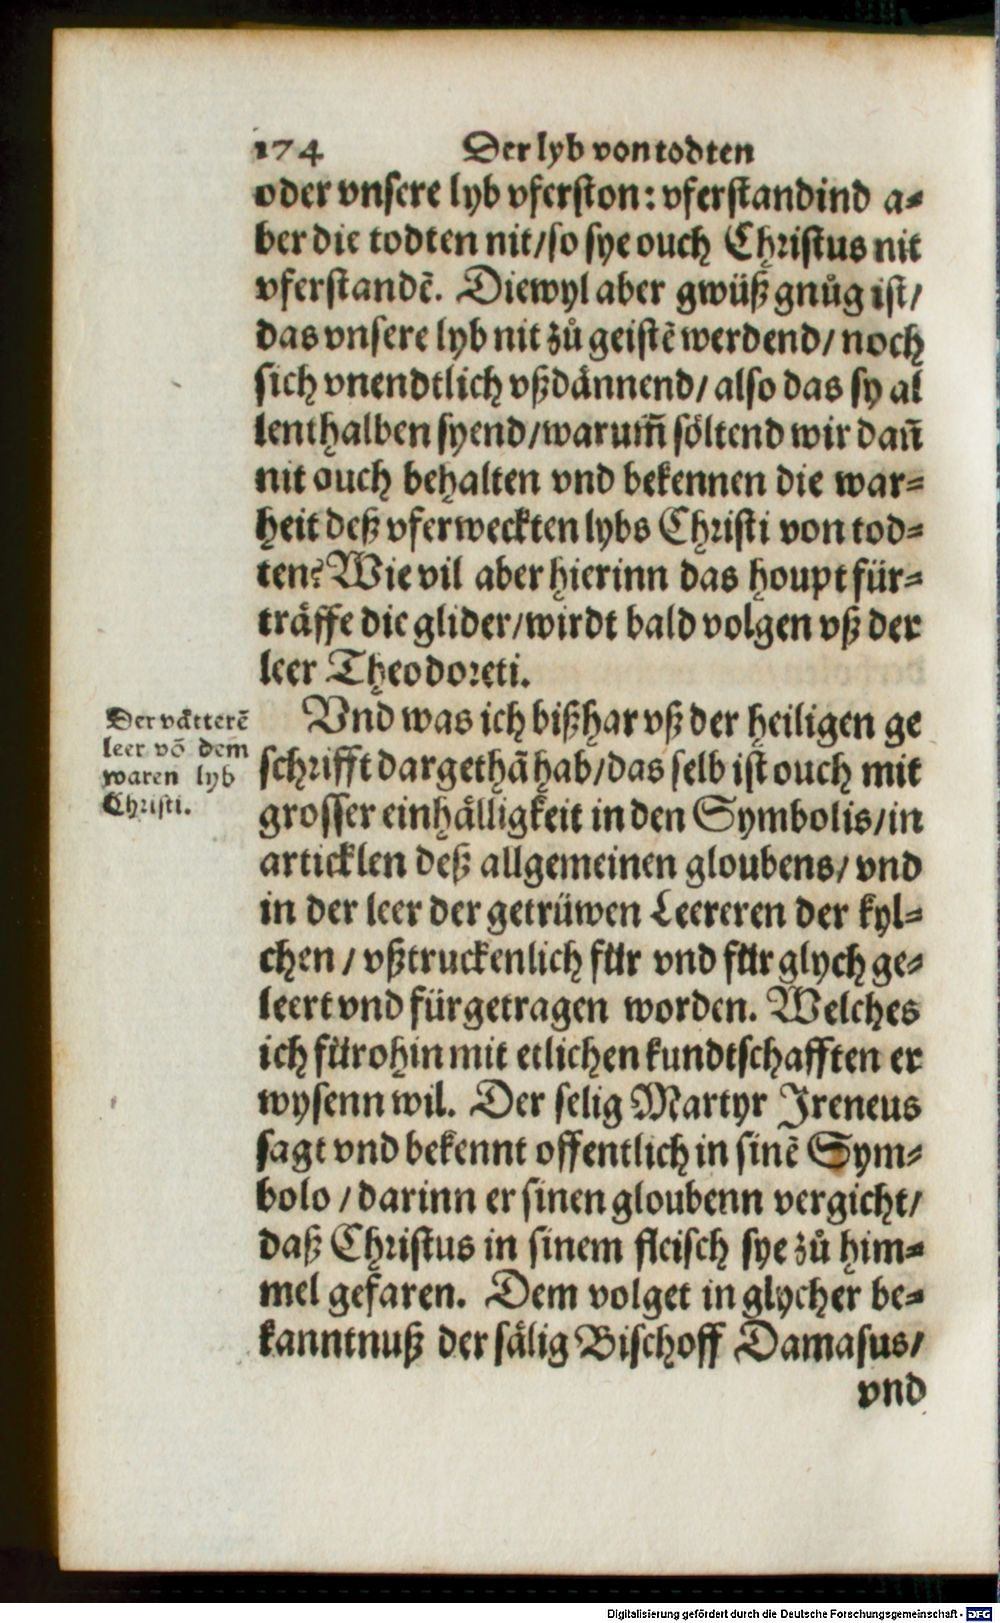 174 Der lyb von todten
oder vnsere lyb vferston: vferstandind a⸗
ber die todten nit/so sye ouch Christus nit
vferstandē. Diewyl aber gwüß gnůg ist/
das vnsere lyb nit zů geistē werdend/ noch
sich vnendtlich vßdännend/ also das sy al
lenthalben syend/warum̄ söltend wir dan̄
nit ouch behalten vnd bekennen die war⸗
heit deß vferweckten lybs Christi von tod⸗
ten? Wie vil aber hierinn das houpt für⸗
träffe die glider/wirdt bald volgen vß der
leer Theodoreti.
Der vätterē
leer vō dem
waren lyb
Christi.
Vnd was ich bißhar vß der heiligen ge
schrifft dargethā hab/das selb ist ouch mit
grosser einhälligkeit in den Symbolis/in
articklen deß allgemeinen gloubens/ vnd
in der leer der getrüwen Leereren der kyl⸗
chen / vßtruckenlich für vnd für glych ge⸗
leert vnd fürgetragen worden. Welches
ich fürohin mit etlichen kundtschafften er
wysenn wil. Der selig Martyr Ireneus
sagt vnd bekennt offentlich in sinē Sym⸗
bolo / darinn er sinen gloubenn vergicht/
daß Christus in sinem fleisch sye zů him⸗
mel gefaren. Dem volget in glycher be⸗
kanntnuß der sälig Bischoff Damasus/
vnd
Digitalisierung gefördert durch die Deutsche Forschungsgemeinschaft - DFG